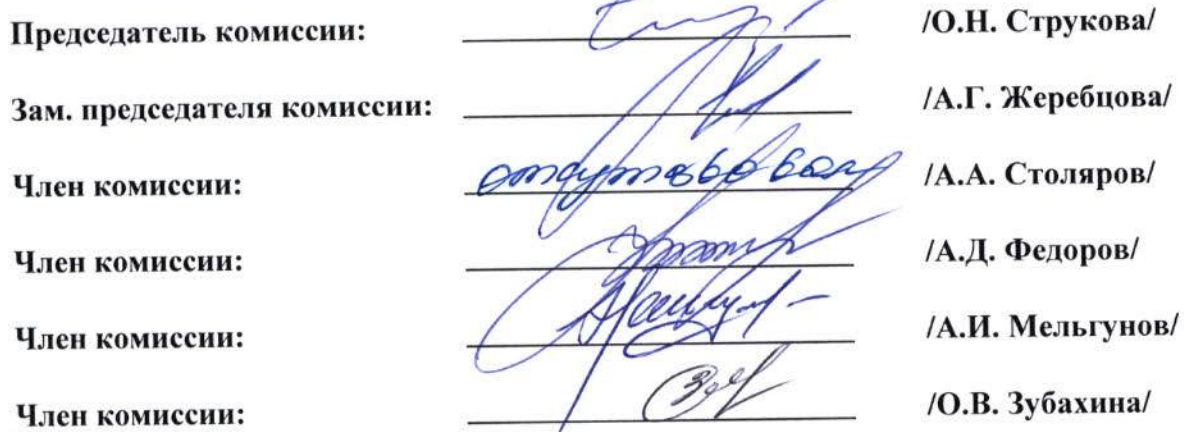 Председатель комиссии: /О.Н. Струкова/
Зам. председателя комиссии: /А.Г. Жеребцова/
Член комиссии: отсутствовал /А.А. Столяров/
Член комиссии: /А.Д. Федоров/
Член комиссии: /А.И. Мельгунов/
Член комиссии: /О.В. Зубахина/